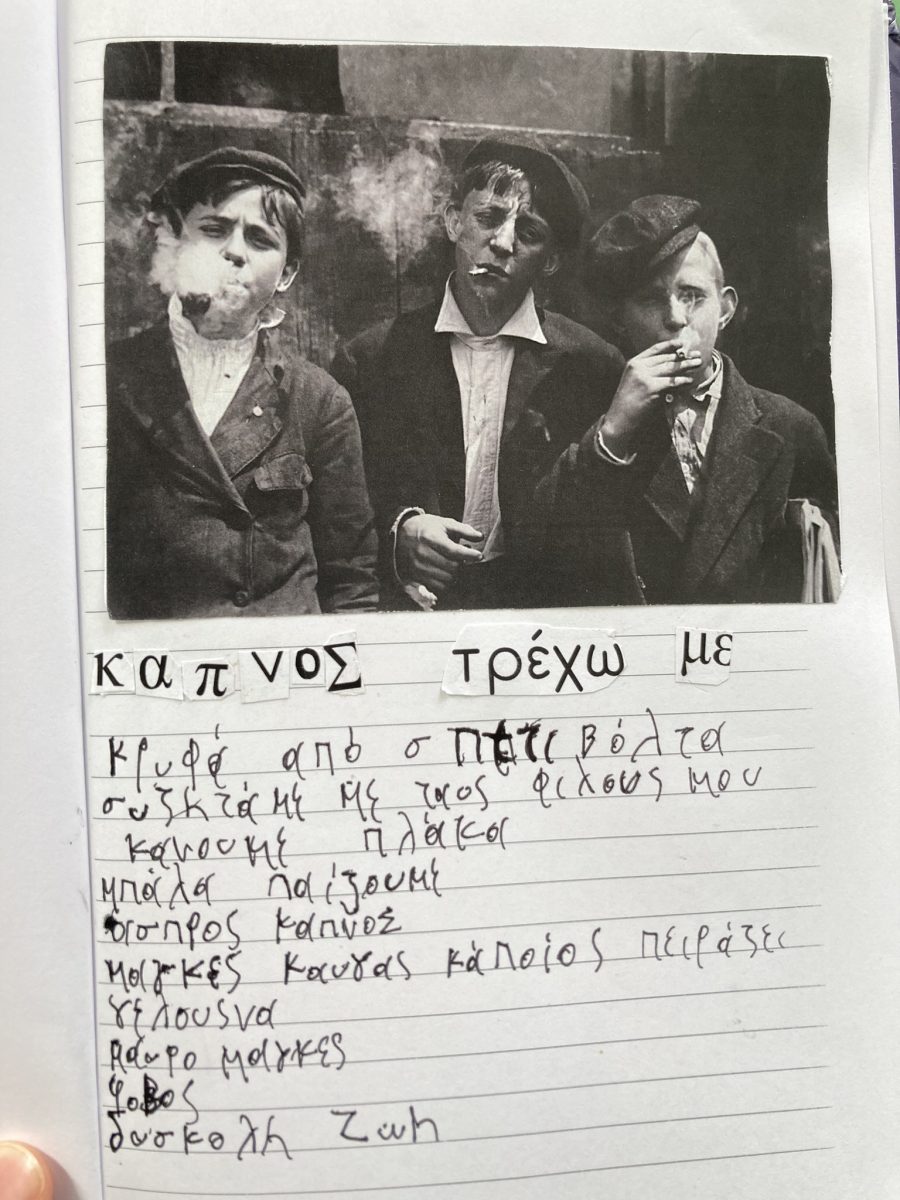 καπνοΣ τρέχω με
κρυφά από σπίτι βόλτα
με τους φιλους μου
κανουμε πλάκα
μπάλα παίζουμε
άσπρος καπνοΣ
μαγκες καυγας κάποίος πειράζει
μαυρο μαγκες
φοβος
δυσκολη ζωη